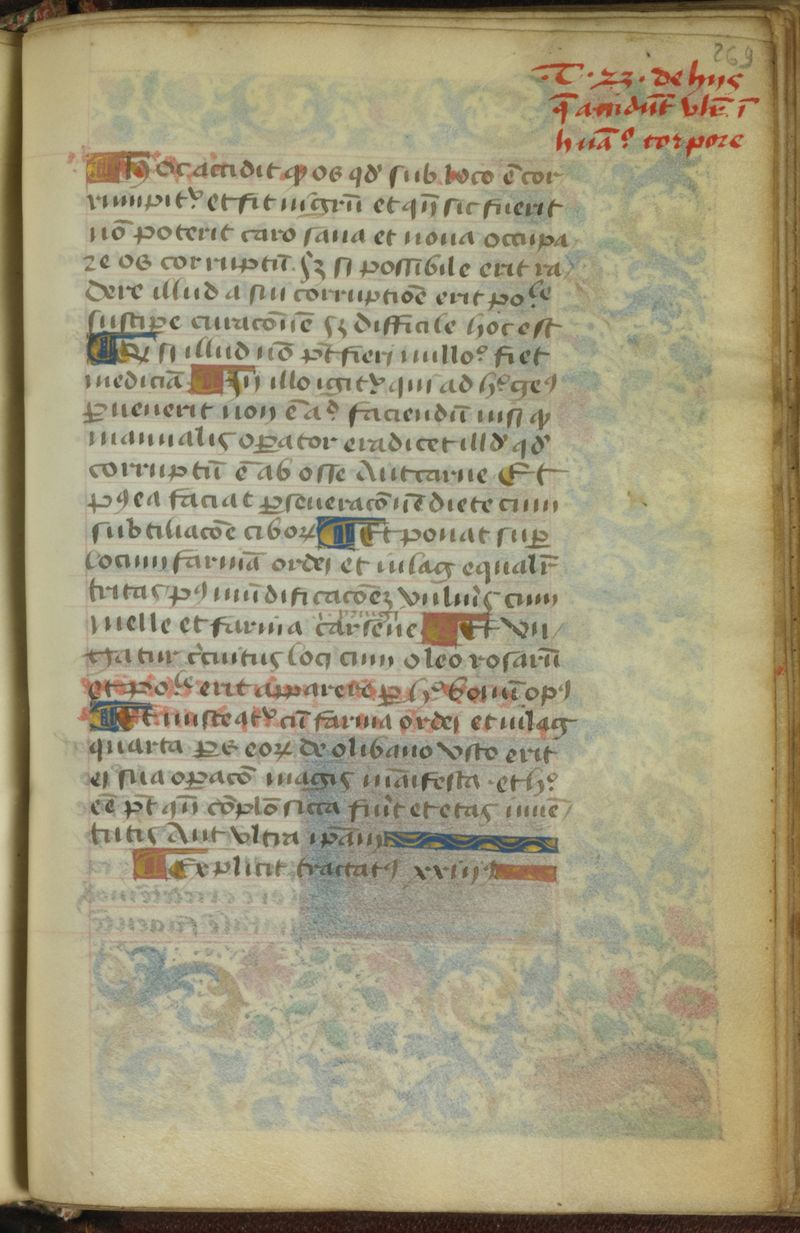 269
·T· 23 · de hijs
q̄ accidūt vlr̄ ī
hūaº corpore
Hoc accidit qꝫ os qd' sub loco ē cor
rumpitr et fit nigrū et qn̄ sic fuerit
nō poterit caro sana et noua occupa
re os corruptū. sꝫ si possibile erit ra
dere illud a sui corruptiōe erit pole
suscipe curacōnē sꝫ difficile hoc est
si illud nō pt̄ fieri nulloº fiet
mediciā In illo igitr qui ad hº geꝰ
ꝑuenerit non ē aº faciendū nisi qꝫ
manualis oꝑator eradicet illd' qd'
corruptū ē ab osse aut carne Et
pꝰ ea faciat ꝑseueracōnē diete cum
subtiliacōe ciboꝝ Et ponat suꝑ
locum farinā ordej et uilag equalr̄
tritas pꝰ mūdificacōeꝫ vulnis cum
melle et farina carsene Et vn
gatur circuitus locj cum oleo rosarū
et pole erit apparere ꝑ hº bonū opꝰ
Et misceatr cū farina ordej et uilag
quarta ꝑs eoꝝ de olibano vsto erit
ej sua oꝑacō magis māifesta · et hº
eē pt̄ qn̄ cōplō sicca fuit et etas iuuē
tutis aut vltra ipam
Explicit tractatꝰ xxiijꝰ